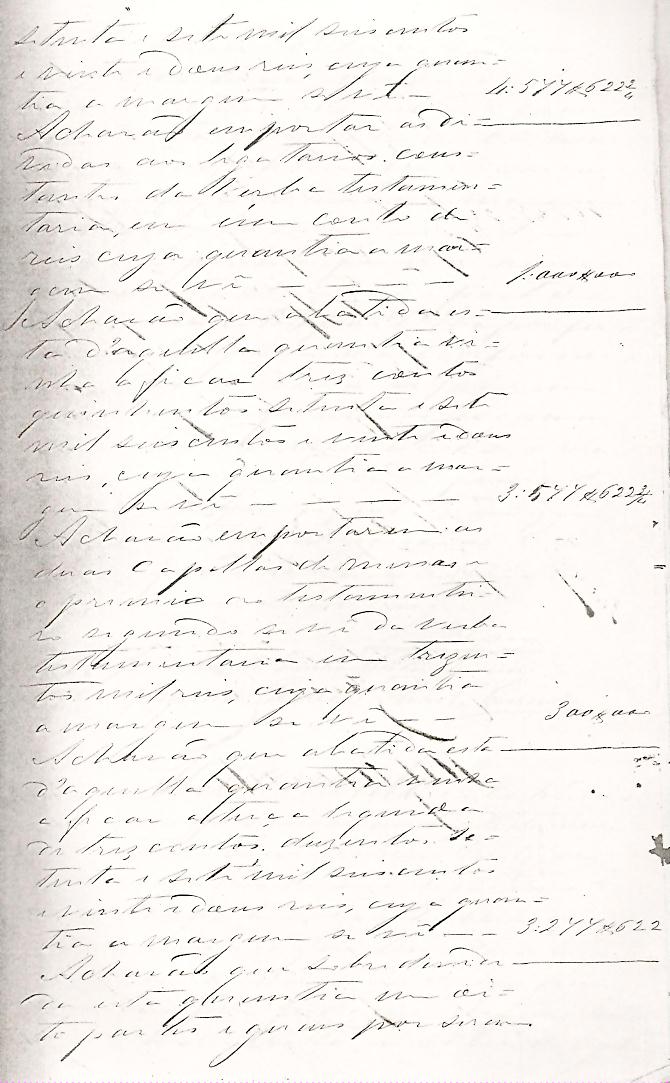 setenta e sete mil seis centos
e vinte e dous reis, cuja quan=
tia a margem se vê — 4:577$622 2/4
Acharão emportar as di=
vidas aos legatarios cons=
tantes da Verba testamen=
taria, em um conto de
reis cuja quantia a mar=
gem se vê — — — — 1:000$000
Acharão que abatida es=
ta d'aquella quantia vi=
nha a ficar tres contos
quinhentos setenta e sete
mil seis centos e vinte e dous
reis, cuja quantia a mar=
gem se vê — — — — 3:577$622 2/4
Acharão emportarem as
duas Capellas de missas e
o premio ao testamentei=
ro segundo se vê da verba
testamentaria em trezen=
tos mil reis, cuja quantia
a margem se vê — — 300$000
Acharão que abatida esta
d'aquella quantia vinha
a ficar a terça liquida
de tres contos duzentos se=
tenta e sete mil seis centos
e vinte e dous reis, cuja quan=
tia a margem se vê — — 3:277$622
Acharão que sobredividi
da esta quantia em oi=
to partes iguaes por serem